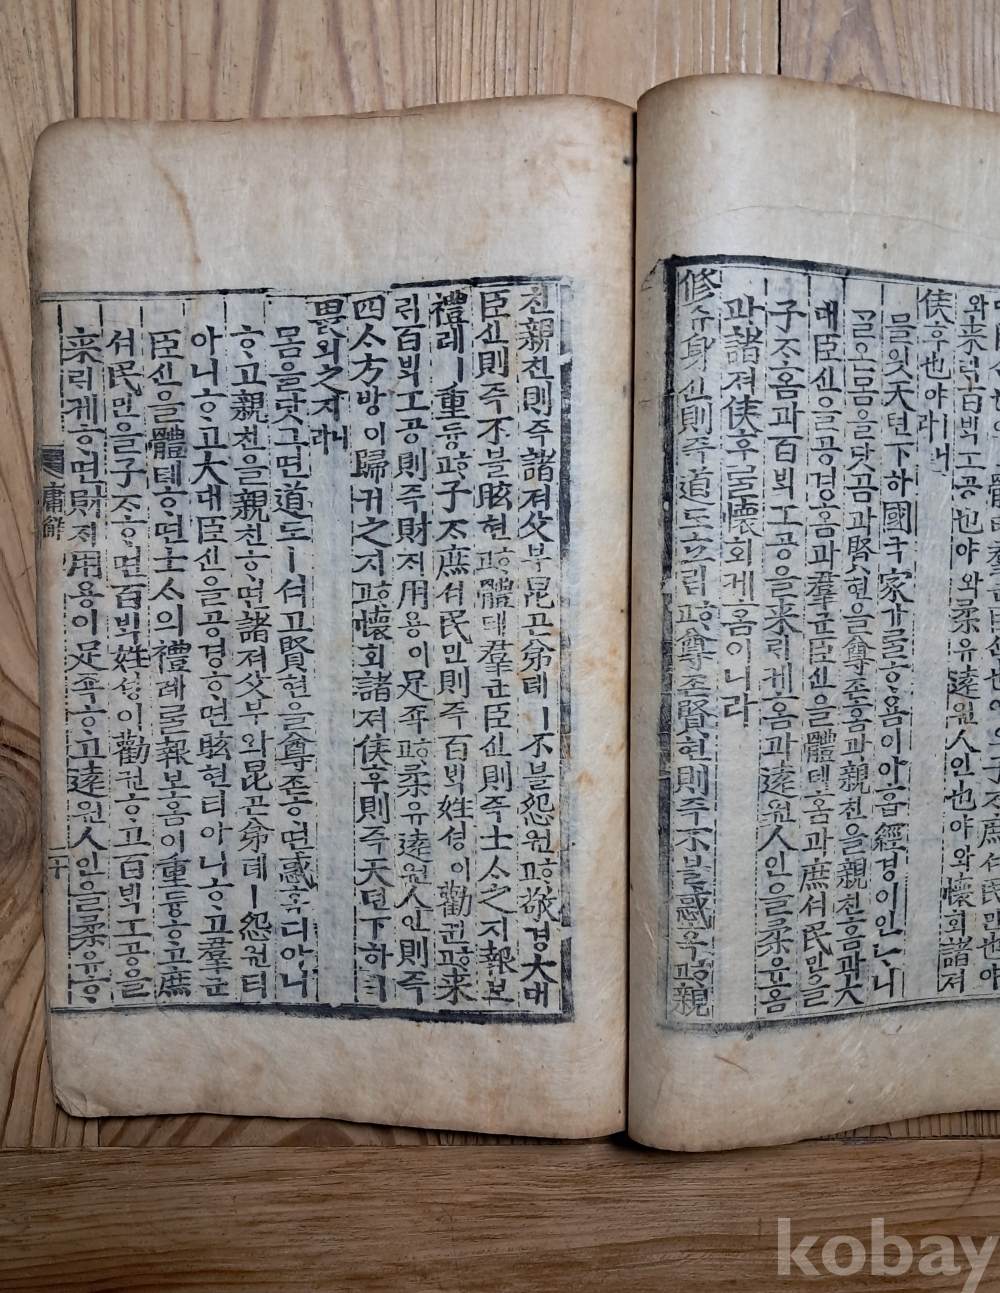 와來ᄅᆡ百ᄇᆡᆨ工공也야와柔유遠원人인也야와懷회諸져
侯후也야ㅣ니라
믈읫天텬下하國국家가를ᄒᆞ욤이아홉經경이인ᄂᆞ니
ᄀᆞᆯ온몸을닷금과賢현을尊존홈과親친을親친홈과大
대臣신을공경홈과羣군臣신을體톄홈과庶셔民민을
子ᄌᆞ홈과百ᄇᆡᆨ工공을來ᄅᆡ케홈과遠원人인을柔유홈
과諸져侯후를懷회케홈이니라
修슈身신則즉道도立립ᄒᆞ고尊존賢현則즉不블惑혹ᄒᆞ고親
친親친則즉諸져父부昆곤弟뎨ㅣ不블怨원ᄒᆞ고敬경大대
臣신則즉不블眩현ᄒᆞ고體톄羣군臣신則즉士ᄉᆞ之지報보
禮례ㅣ重듕ᄒᆞ고子ᄌᆞ庶셔民민則즉百ᄇᆡᆨ姓셩이勸권ᄒᆞ고來
ᄅᆡ百ᄇᆡᆨ工공則즉財ᄌᆡ用용이足죡ᄒᆞ고柔유遠원人인則즉
四ᄉᆞ方방이歸귀之지ᄒᆞ고懷회諸져侯후則즉天텬下하ㅣ
畏외之지니라
몸을닷그면道도ㅣ셔고賢현을尊존ᄒᆞ면惑혹디아니
ᄒᆞ고親친을親친ᄒᆞ면諸져父부와昆곤弟뎨ㅣ怨원티
아니ᄒᆞ고大대臣신을공경ᄒᆞ면眩현티아니ᄒᆞ고羣군
臣신을體톄ᄒᆞ면士ᄉᆞ의禮례를報보홈이重듕ᄒᆞ고庶
셔民민을子ᄌᆞᄒᆞ면百ᄇᆡᆨ姓셩이勸권ᄒᆞ고百ᄇᆡᆨ工공을
來ᄅᆡ케ᄒᆞ면財ᄌᆡ用용이足죡ᄒᆞ고遠원人인을柔유ᄒᆞ
庸解
kobay